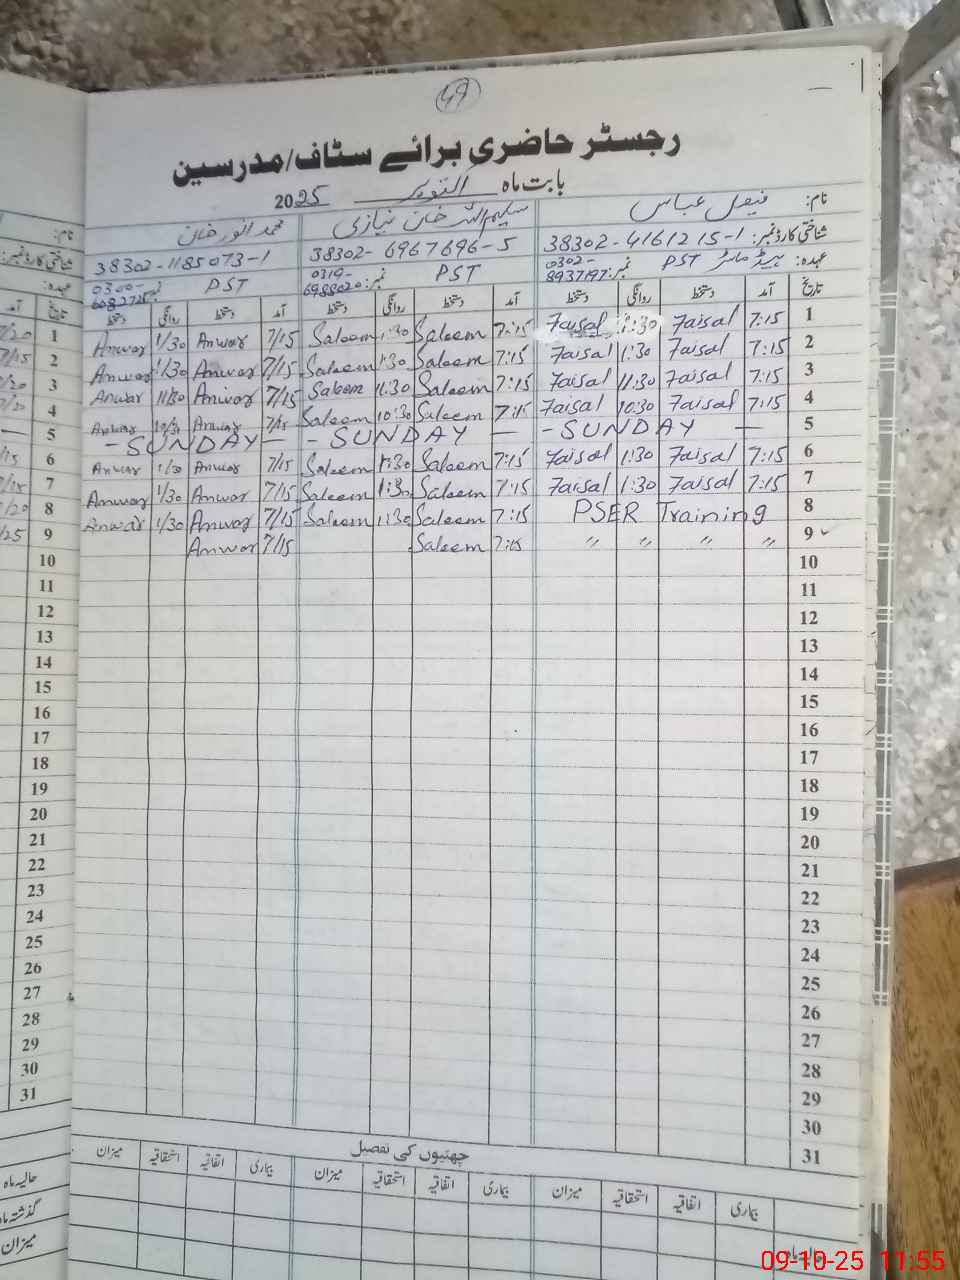 49
رجسٹر حاضری برائے سٹاف/مدرسین
بابت ماہ اکتوبر 2025
نام: فیصل عباس سلیم اللہ خان نیازی محمد انور خان
شناختی کارڈ نمبر: 38302-4161215-1 38302-6967696-5 38302-1185073-1
عہدہ: ہیڈ ماسٹر PST نمبر: 0302-8937197 PST نمبر: 0319-6988020 PST نمبر: 0300-6082725
تاریخ آمد دستخط روانگی دستخط آمد دستخط روانگی دستخط آمد دستخط روانگی دستخط
1 7:15 Faisal 1:30 Faisal 7:15 Saleem 1:30 Saleem 7/15 Anwar 1/30 Anwar 1
2 7:15 Faisal 1:30 Faisal 7:15 Saleem 1:30 Saleem 7/15 Anwar 1/30 Anwar 2
3 7:15 Faisal 11:30 Faisal 7:15 Saleem 11:30 Saleem 7/15 Anwar 11/30 Anwar 3
4 7:15 Faisal 10:30 Faisal 7:15 Saleem 10:30 Saleem 7/15 Anwar 10/30 Anwar 4
5 - SUNDAY — - SUNDAY — - SUNDAY — 5
6 7:15 Faisal 1:30 Faisal 7:15 Saleem 1:30 Saleem 7/15 Anwar 1/30 Anwar 6
7 7:15 Faisal 1:30 Faisal 7:15 Saleem 1:30 Saleem 7/15 Anwar 1/30 Anwar 7
8 PSER Training 7:15 Saleem 1:30 Saleem 7/15 Anwar 1/30 Anwar 8
9 〃 〃 〃 〃 7:15 Saleem 7/15 Anwar 9
10 10
11 11
12 12
13 13
14 14
15 15
16 16
17 17
18 18
19 19
20 20
21 21
22 22
23 23
24 24
25 25
26 26
27 27
28 28
29 29
30 30
31 31
چھٹیوں کی تفصیل
بیماری اتفاقیہ استحقاقیہ میزان بیماری اتفاقیہ استحقاقیہ میزان بیماری اتفاقیہ استحقاقیہ میزان
حالیہ ماہ
گذشتہ ماہ
میزان
نام:
شناختی کارڈ نمبر:
عہدہ:
تاریخ آمد
09-10-25 11:55